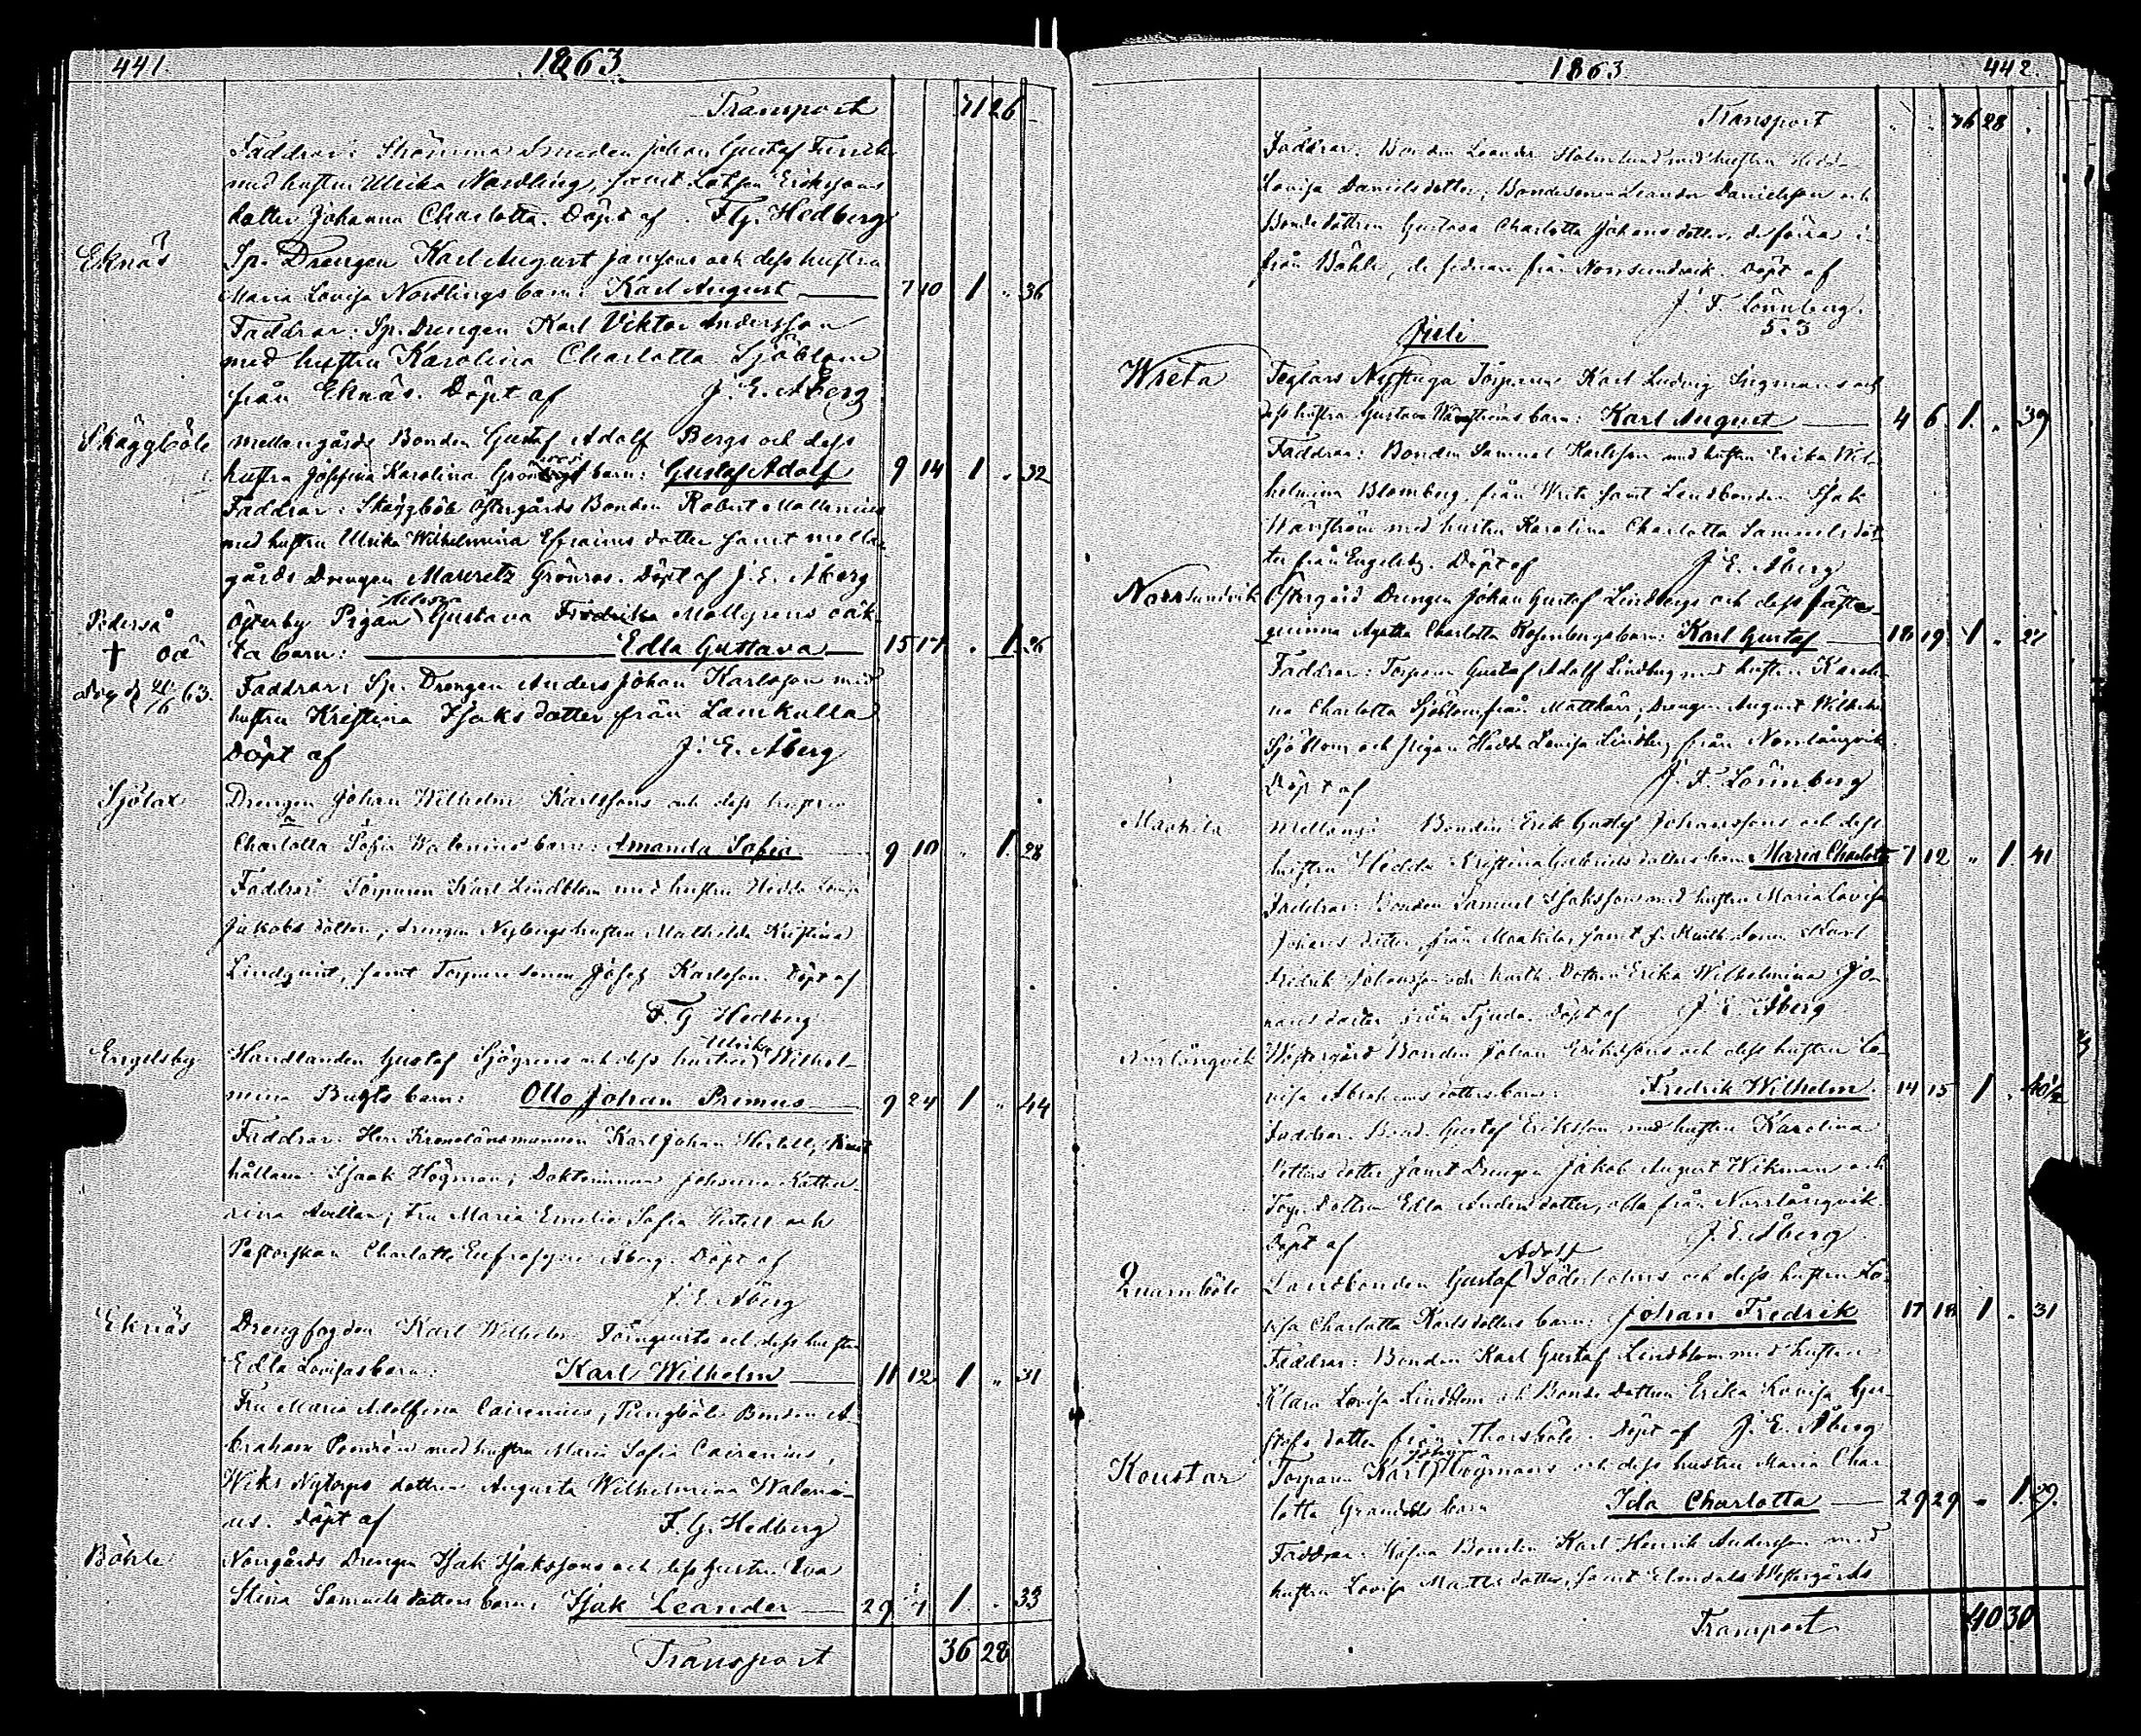 441. 1863.
Transport 31 26
Faddrar: Strömma Smeden Johan Gustaf
med hustru Ulrika Nordling, samt Erikssons
dotter Johanna Charlotta. Döpt af F. G. Hedberg
Eknäs Sp. Drengen Karl August Jansons och dess hustru
Maria Lovisa Nordlings barn: Karl August 7 10 1 " 36
Faddrar: Sp. Drengen Karl Viktor Andersson
med hustru Karolina Charlotta Sjöblom
från Eknäs. Döpt af J. E. Åberg
Skäggböle mellangårds Bonden Gustaf Adolf Bergs och dess
hustru Josefina Karolina barn: Gustaf Adolf 9 14 1 " 32
Faddrar: Skäggböle Östergårds Bonden Robert Mallenius
med hustru Ulrika Wilhelmina Efraims dotter samt mellan
gårds Drengen Mauritz Grönros. Döpt af J. E. Åberg
Pederså Österby Pigan Gustava Fredrika Mollgrens oäk
† oä ta barn: Edla Gustava 15 17 " 1 26
Faddrar: Sp. Drengen Anders Johan Karlsson med
dog d. 63. hustru Kristina Isaks dotter från Lamkulla
Döpt af J. E. Åberg
Sjölax Drengen Johan Wilhelm Karlssons och dess hustru
Charlotta Sofia Walenius barn: Amanda Sofia 9 10 " 1 28
Faddrar: Torparen Karl Lindblom med hustru Hedda Lovisa
Jakobs dotter, drengen Nybergs hustru Mathilda Kristina
Lindqvist, samt Torpare sonen Josef Karlsson. Döpt af
F. G. Hedberg
Engelsby Handlanden Gustaf Sjögrens och dess hustru Ulrika Wilhel-
mina barn: Otto Johan Primus 9 24 1 " 44
Faddrar: Herr Kronolänsmannen Karl Johan Hertell,
hållaren Isaak Högman; Doktorinnan Johanna Katha-
rina Avellan; Fru Maria Emelie Sofia Hertell och
Pastorskan Charlotta Eufrosyne Åberg. Döpt af
J. E. Åberg
Eknäs Drengfogden Karl Wilhelm Törnqvists och dess hustru
Edla Lovisas barn: Karl Wilhelm 11 12 1 " 31
Fru Maria Adolfina Cairenius, Pungböle Bonden A-
braham med hustru Maria Sofia Cairenius,
Wiks Nytorps dottren Augusta Wilhelmina Waleni-
us. Döpt af F. G. Hedberg
Böhle Norrgårds Drengen Isak Isakssons och dess hustru Eva
Stina Samuels dotters barn: Isak Leander 29 1 " 33
Transport 36 28
1863 442.
Transport 36 28
Faddrar: Bonden Leander Holmlund med hustru Hedda
Lovisa Daniels dotter; Bondesonen Leander Danielsson och
Bonde dottren Gustava Charlotta Johans dotter, de förra
från Böhle, de sednare från Norrsundvik. Döpt af
J. F. Lönnberg.
5.3
Juli
Wreta Teglars Nystuga Torparen Karl Ludvig Sigmans och
dess hustru Gustava barn: Karl August 4 6 1 " 39
Faddrar: Bonden Samuel Karlsson med hustru Erika Wil-
helmina Blomberg, från Wreta samt Landbonden Isak
med hustru Karolina Charlotta Samuels dot
ter från Engelsby. Döpt af J. E. Åberg
Norrsundvik Östergård Drengen Johan Gustaf Lindbergs och dess fäste-
qvinna Agatha Charlotta Rosenbergs barn: Karl Gustaf 18 19 1 " 27
Faddrar: Torparen Gustaf Adolf Lindberg med hustru Karoli-
na Charlotta Sjöblom, från Mattkärr, Drengen August Wilhelm
Sjöblom och pigan Hedda Lovisa Lindberg från Norrlångvik.
Döpt af J. F. Lönnberg
Maakila mellang: Bonden Erik Gustaf Johanssons och dess
hustru Hedda Kristina Gabriels dotters barn Maria Charlotta 7 12 " 1 41
Faddrar: Bonden Samuel Isaksson med hustru Maria Lovisa
Johans dotter, från Maakila, samt Sonen Karl
Fredrik Johansson och Dottren Erika Wilhelmina Jo-
hans dotter från Tjuda. Döpt af J. E. Åberg
Norrlångvik Westergård Bonden Johan Erikssons och dess hustru Lo-
visa Abrahams dotters barn: Fredrik Wilhelm 14 15 1 " 40½
Faddrar: Bond. Gustaf Eriksson med hustru Karolina
Petters dotter samt Drengen Jakob August Wikman och
Torp. dottren Edla Anders dotter, alla från Norrlångvik.
Döpt af J. E. Åberg
Qvarnböle Landbonden Gustaf Adolf Söderholms och dess hustru Lo-
visa Charlotta Karls dotters barn: Johan Fredrik 17 18 1 " 31
Faddrar: Bonden Karl Gustaf Lindblom med hustru
Klara Lovisa Lindblom och Bonde dottren Erika Lovisa Gu-
stafs dotter från Thorsböle. Döpt af J. E. Åberg
Koustar Torparen Karl Johan Högmans och dess hustru Maria Char
lotta barn Ida Charlotta 29 29 " 1. 29.
Faddrar: Bonden Karl Henrik Andersson med
hustru Lovisa Matts dotter, samt Westergårds
Transport 40 30